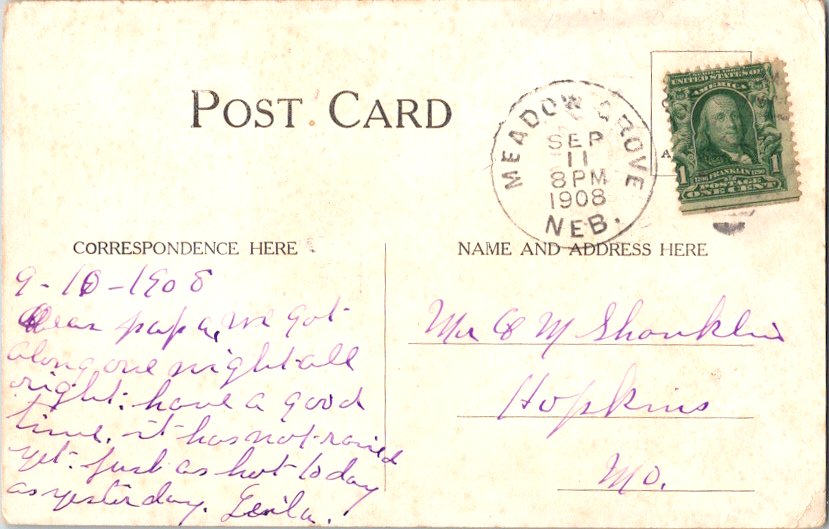 POST CARD
MEADOW GROVE
SEP
11
8PM
1908
NEB.
UNITED STATES OF
AMERICA
1 FRANKLIN 1
POSTAGE
ONE CENT
CORRESPONDENCE HERE
NAME AND ADDRESS HERE
9-10-1908
Dear papa, we got
along one night all
right. have a good
time. it has not rained
yet. Just as hot today
as yesterday. Leila.
Mr M Shanklin
Hopkins
Mo.